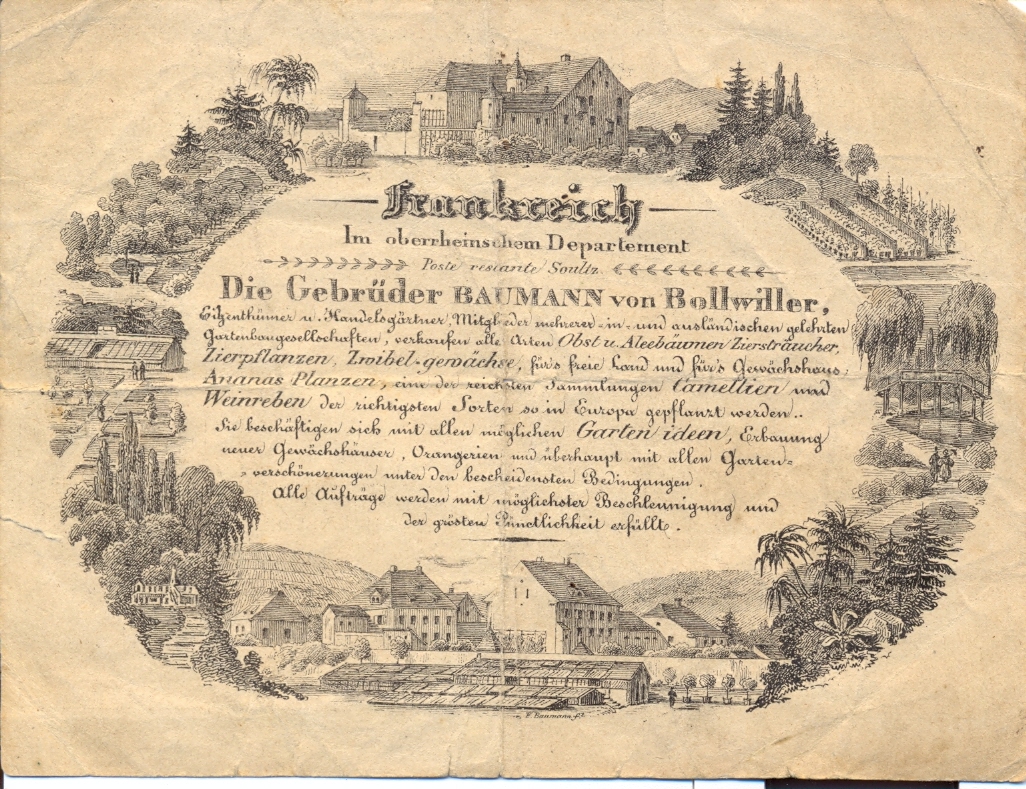 Frankreich
Im oberrheinschem Departement
Poste restante Soultz.
Die Gebrüder BAUMANN von Bollwiller,
Eigenthümer u. Handelsgärtner, Mitglieder mehrerer in- und ausländischen gelehrten
Gartenbaugesellschaften, verkaufen alle Arten Obst u. Aleebäumen Ziersträucher,
Zierpflanzen, Zwibel-gewächse, für's freie Land und für's Gewächshaus,
Ananas Planzen, eine der reichsten Sammlungen Camellien und
Weinreben der richtigsten Sorten so in Europa gepflanzt werden..
Sie beschäftigen sich mit allen möglichen Garten ideen, Erbauung
neuer Gewächshäuser, Orangerien und überhaupt mit allen Garten-
verschönerungen unter den bescheidensten Bedingungen.
Alle Aufträge werden mit möglichster Beschleunigung und
der grösten Pünctlichkeit erfüllt.
F. Baumann